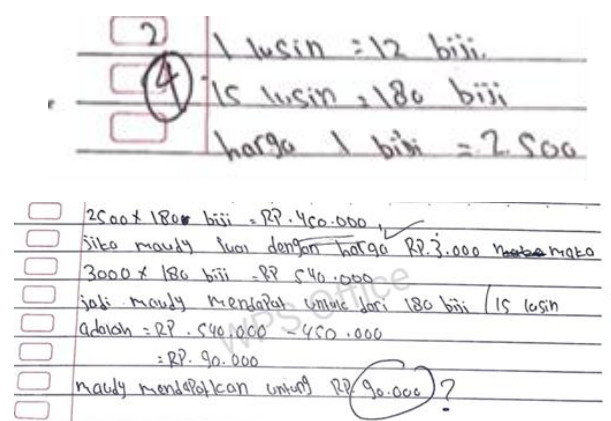 2
1 lusin = 12 biji.
4
15 lusin = 180 biji
harga 1 biji = 2.500
2500 x 180 biji = RP. 450.000
jika maudy jual dengan harga RP. 3.000 maka
3000 x 180 biji = RP 540.000
jadi maudy mendapat untuk dari 180 biji / 15 lusin
adalah = RP. 540.000 - 450.000
= RP. 90.000
maudy mendapatkan untung RP. 90.000 ?
WPS Office